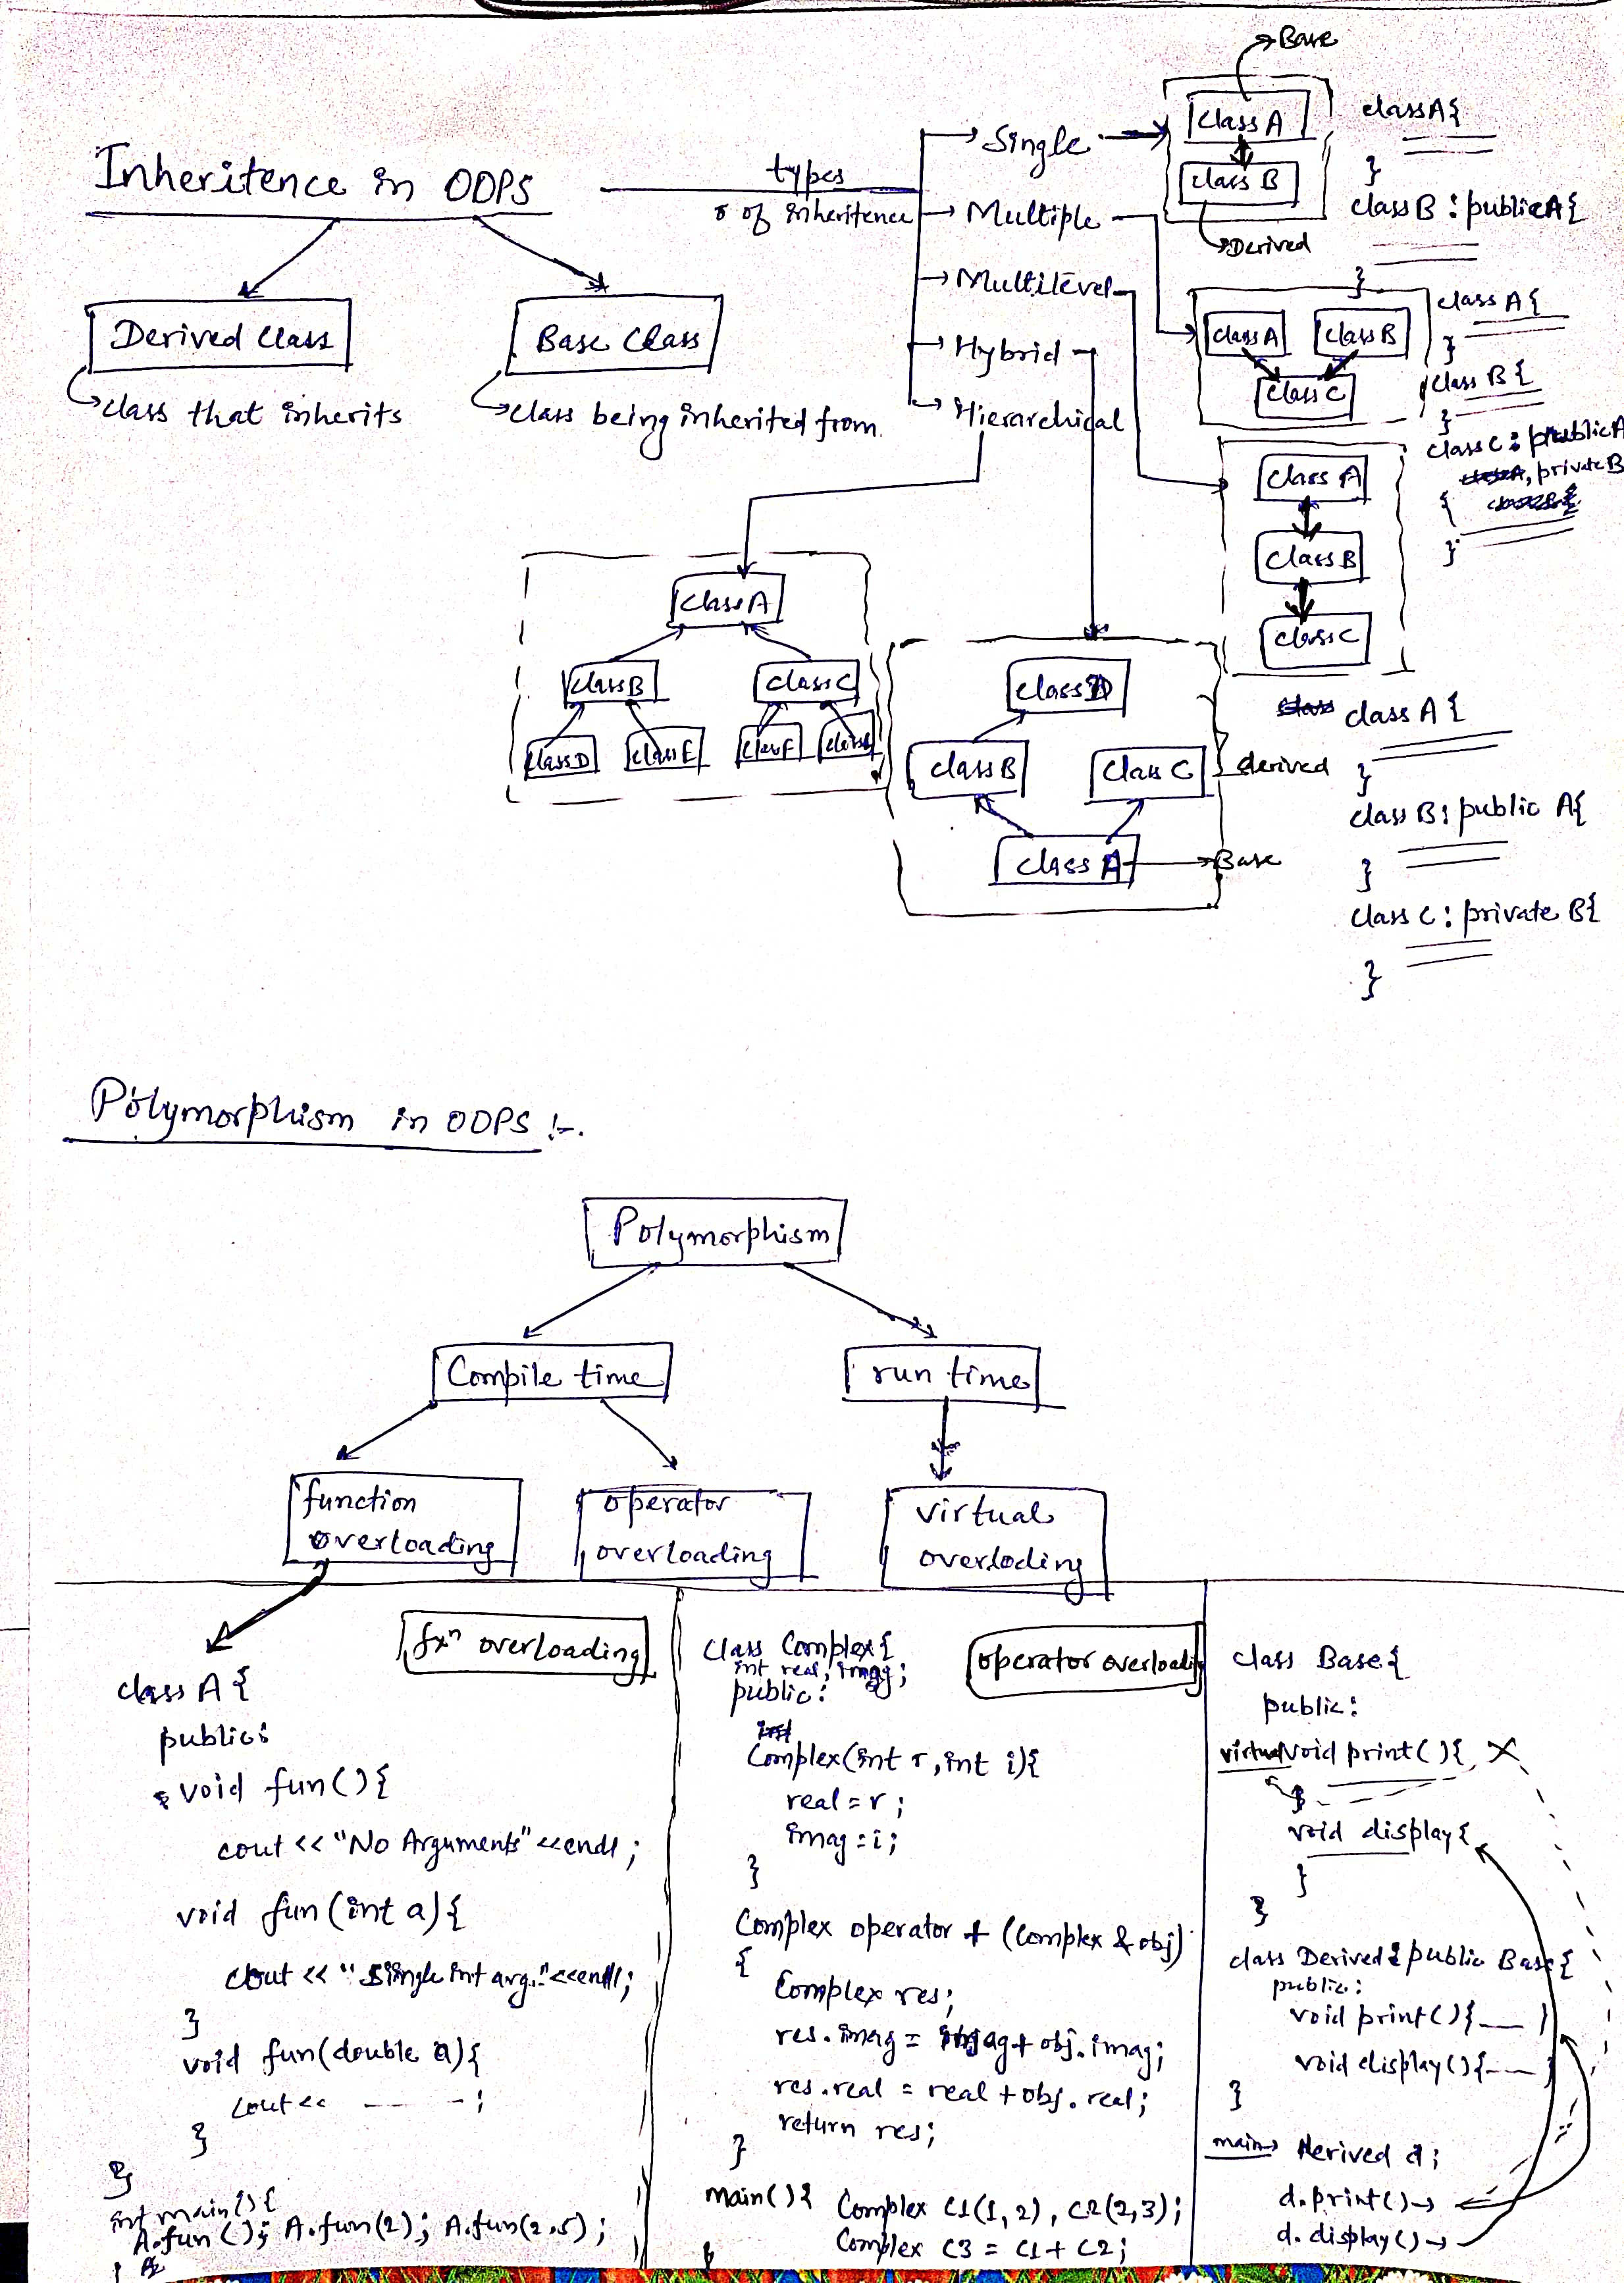 Inheritence in OOPS
types
of inheritence
Derived Class
class that inherits
Base Class
class being inherited from.
Single
Multiple
Multilevel
Hybrid
Hierarchical
Base
class A
class B
Derived
class A{
}
class B : public A{
}
class A
class B
class C
class A{
}
class B{
}
class C : public A
, private B
{
}
class A
class B
class C
class A{
}
class B : public A{
}
class C : private B{
}
class A
class B
class C
class D
class E
class F
class D
class B
class C
derived
class A
Base
Polymorphism in OOPS :-
Polymorphism
Compile time
run time
function
overloading
operator
overloading
virtual
overloding
fxn overloading
class A{
public:
void fun(){
cout << "No Arguments" <<endl;
void fun(int a){
cout << "Single int arg." <<endl;
}
void fun(double a){
cout << ----;
}
}
int main(){
A.fun(); A.fun(2); A.fun(2.5);
operator overloading
class Complex{
int real, imag;
public:
Complex(int r, int i){
real = r;
imag = i;
}
Complex operator + (Complex & obj)
{
Complex res;
res.imag = imag + obj.imag;
res.real = real + obj.real;
return res;
}
main(){ Complex C1(1, 2), C2(2,3);
Complex C3 = C1 + C2;
class Base{
public:
virtual void print(){ X
}
void display{
}
}
class Derived : public Base{
public:
void print(){___}
void display(){___}
}
main Derived d;
d.print()
d.display()